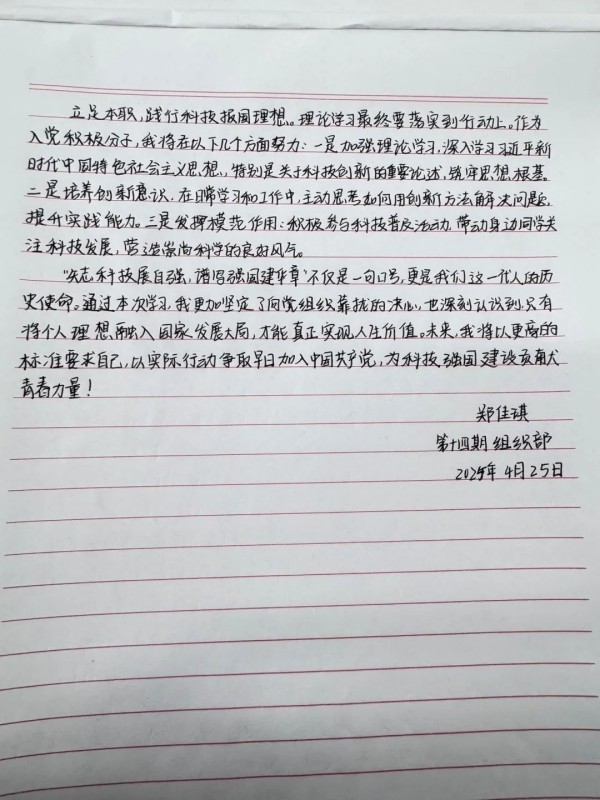 立足本职,践行科技报国理想。理论学习最终要落实到行动上。作为
入党积极分子,我将在以下几个方面努力:一是加强理论学习,深入学习习近平新
时代中国特色社会主义思想,特别是关于科技创新的重要论述,筑牢思想根基。
二是培养创新意识,在日常学习和工作中,主动思考如何用创新方法解决问题,
提升实践能力。三是发挥模范作用:积极参与科技普及活动,带动身边同学关
注科技发展,营造崇尚科学的良好风气。
“矢志科技展自强,谱写强国建华章”不仅是一句口号,更是我们这一代人的历
史使命。通过本次学习,我更加坚定了向党组织靠拢的决心,也深刻认识到只有
将个人理想融入国家发展大局,才能真正实现人生价值。未来,我将以更高的
标准要求自己,以实际行动争取早日加入中国共产党,为科技强国建设贡献
青春力量!
郑佳琪
第十四期组织部
2025年4月25日